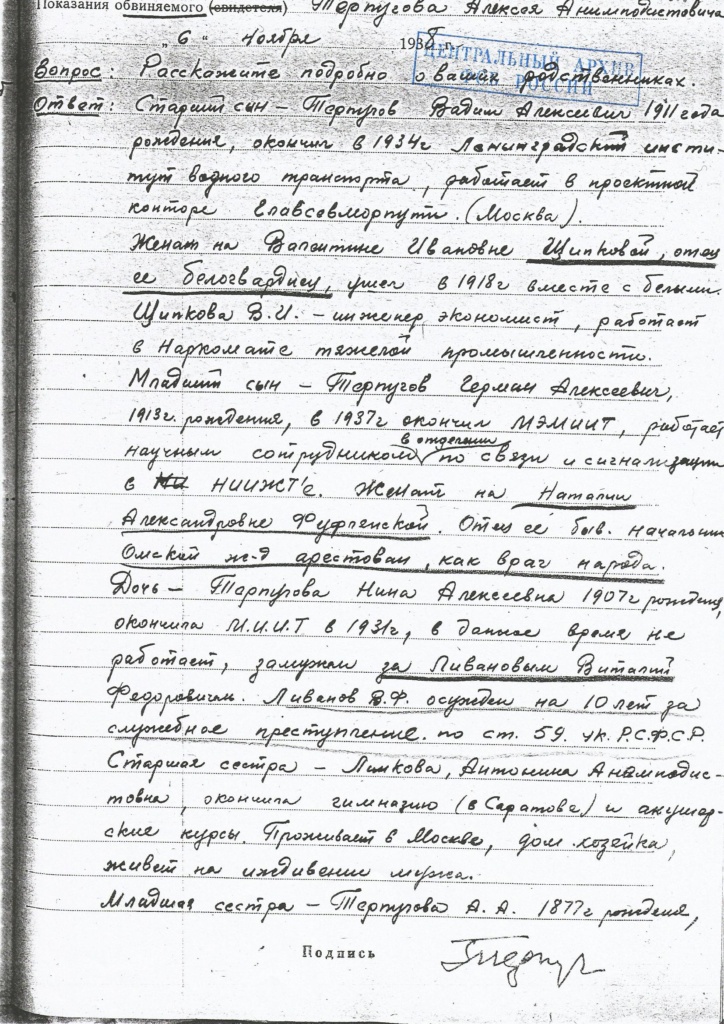 Показания обвиняемого (свидетеля) Терпугова Алексея Анимподистовича
„ 6 “ ноября 1938 г.
ЦЕНТРАЛЬНЫЙ АРХИВ
ФСБ РОССИИ
Вопрос: Расскажите подробно о ваших родственниках.
Ответ: Старший сын – Терпугов Вадим Алексеевич 1911 года
рождения, окончил в 1934г Ленинградский инсти-
тут водного транспорта, работает в проектной
конторе Главсевморпути. (Москва).
Женат на Валентине Ивановне Щипковой, отец
ее белогвардиец, ушел в 1918г вместе с белыми.
Щипкова В.И. – инженер экономист, работает
в Наркомате тяжелой промышленности.
Младший сын – Терпугов Герман Алексеевич,
1913г. рождения, в 1937г окончил МЭМИИТ, работает
в отделении
научным сотрудником по связи и сигнализации
в НИИЖТ'е. Женат на Наталии
Александровне Фуфлевской. Отец ее быв. начальник
Омской ж-д арестован, как враг народа.
Дочь – Терпугова Нина Алексеевна 1907г рождения,
окончила М.И.И.Т в 1931г, в данное время не
работает, замужем за Ливановым Виталий
Федоровичем. Ливанов В.Ф. осужден на 10 лет за
служебное преступление. по ст. 59. ук. Р.С.Ф.С.Р.
Старшая сестра – Лимкова, Антонина Анимподис-
товна, окончила гимназию (в Саратове) и акушер-
ские курсы. Проживает в Москве, дом. хозяйка,
живет на иждивении мужа.
Младшая сестра – Терпугова А. А. 1877г рождения,
Подпись
Терпуг